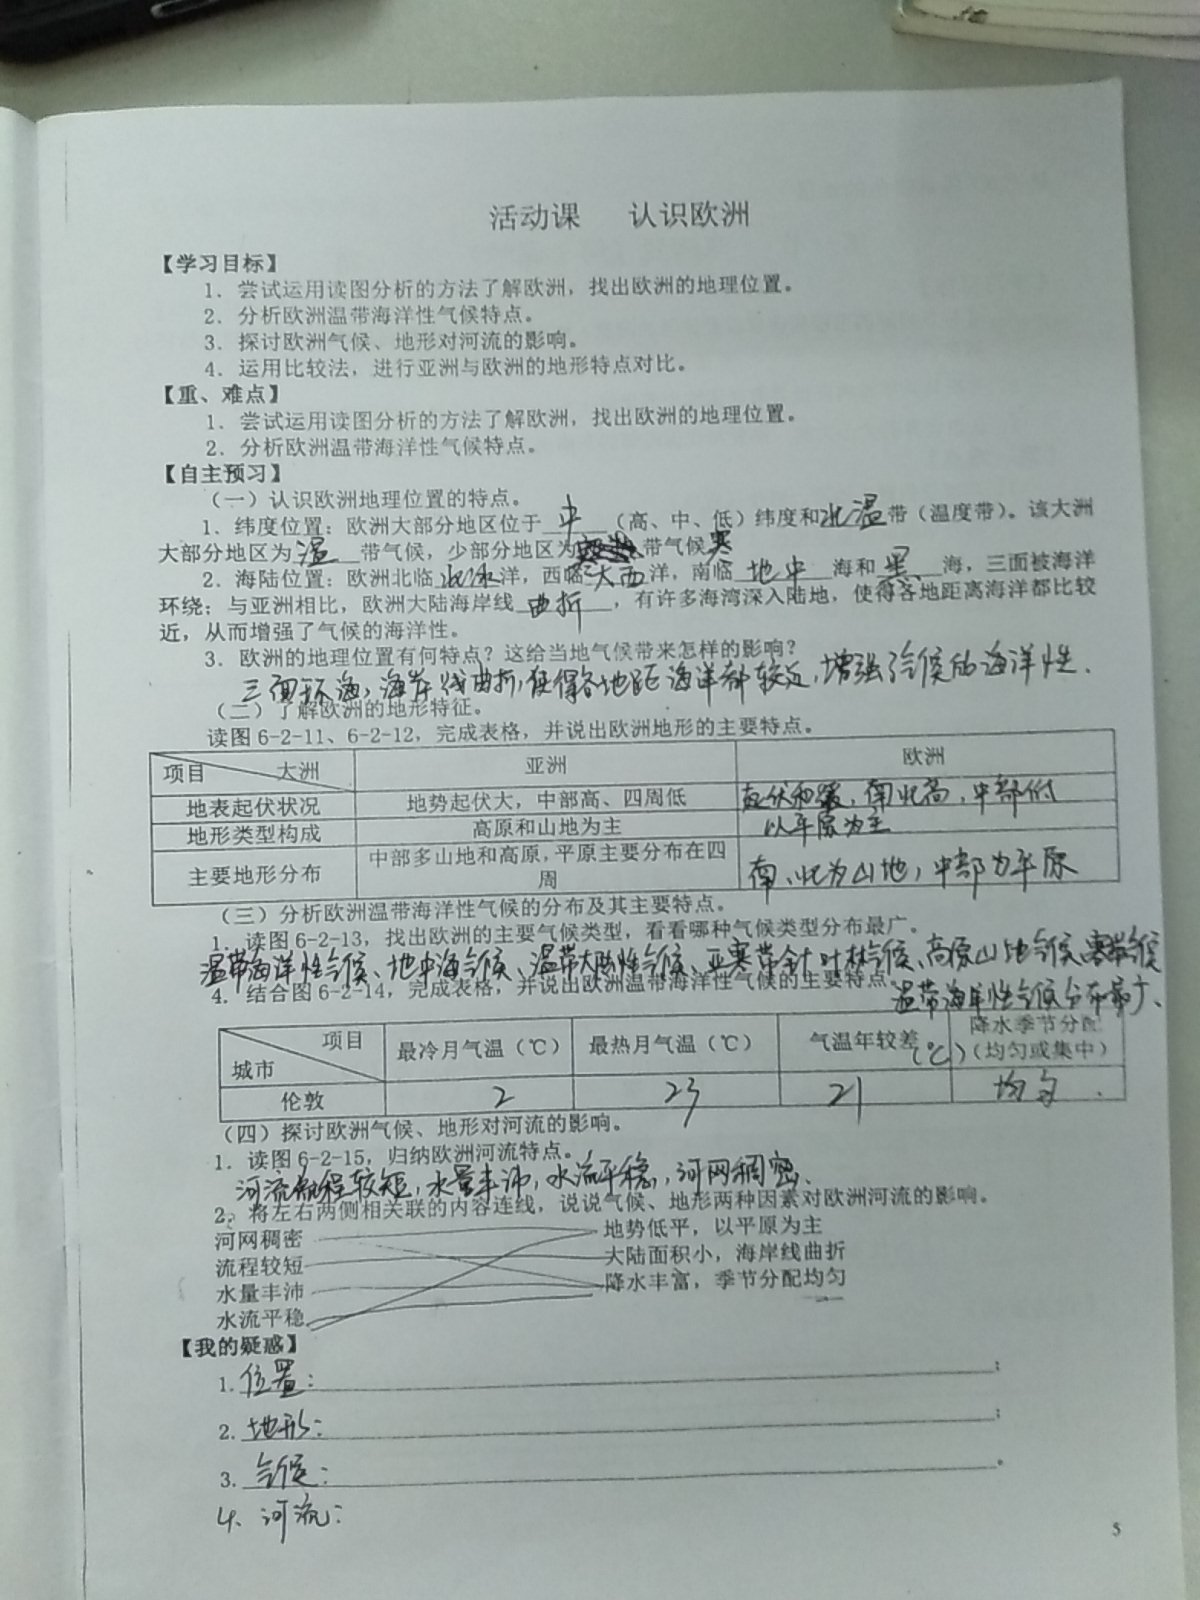 活动课 认识欧洲
【学习目标】
1. 尝试运用读图分析的方法了解欧洲，找出欧洲的地理位置。
2. 分析欧洲温带海洋性气候特点。
3. 探讨欧洲气候、地形对河流的影响。
4. 运用比较法，进行亚洲与欧洲的地形特点对比。
【重、难点】
1. 尝试运用读图分析的方法了解欧洲，找出欧洲的地理位置。
2. 分析欧洲温带海洋性气候特点。
【自主预习】
（一）认识欧洲地理位置的特点。
1. 纬度位置：欧洲大部分地区位于 中 （高、中、低）纬度和北温带（温度带）。该大洲
大部分地区为 温 带气候，少部分地区为 带气候 寒
2. 海陆位置：欧洲北临北冰洋，西临大西洋，南临 地中 海和 黑 海，三面被海洋
环绕；与亚洲相比，欧洲大陆海岸线 曲折 ，有许多海湾深入陆地，使得各地距离海洋都比较
近，从而增强了气候的海洋性。
3. 欧洲的地理位置有何特点？这给当地气候带来怎样的影响？
三面环海，海岸线曲折，使得各地距海洋都较近，增强了气候的海洋性.
（二）了解欧洲的地形特征。
读图6-2-11、6-2-12，完成表格，并说出欧洲地形的主要特点。
项目 大洲 亚洲 欧洲
地表起伏状况 地势起伏大，中部高、四周低 起伏和缓，南北高，中部低
地形类型构成 高原和山地为主 以平原为主
主要地形分布 中部多山地和高原，平原主要分布在四周 南、北为山地，中部为平原
（三）分析欧洲温带海洋性气候的分布及其主要特点。
1. 读图6-2-13，找出欧洲的主要气候类型，看看哪种气候类型分布最广。
温带海洋性气候、地中海气候、温带大陆性气候、亚寒带针叶林气候、高原山地气候、寒带气候
温带海洋性气候分布最广、
4. 结合图6-2-14，完成表格，并说出欧洲温带海洋性气候的主要特点。
项目 城市 最冷月气温（℃） 最热月气温（℃） 气温年较差（℃） 降水季节分配（均匀或集中）
伦敦 2 23 21 均匀.
（四）探讨欧洲气候、地形对河流的影响。
1. 读图6-2-15，归纳欧洲河流特点。
河流航程较短，水量丰沛，水流平稳，河网稠密.
2. 将左右两侧相关联的内容连线，说说气候、地形两种因素对欧洲河流的影响。
河网稠密 地势低平，以平原为主
流程较短 大陆面积小，海岸线曲折
水量丰沛 降水丰富，季节分配均匀
水流平稳
【我的疑惑】
1. 位置： ；
2. 地形： ；
3. 气候： 。
4、河流：
5